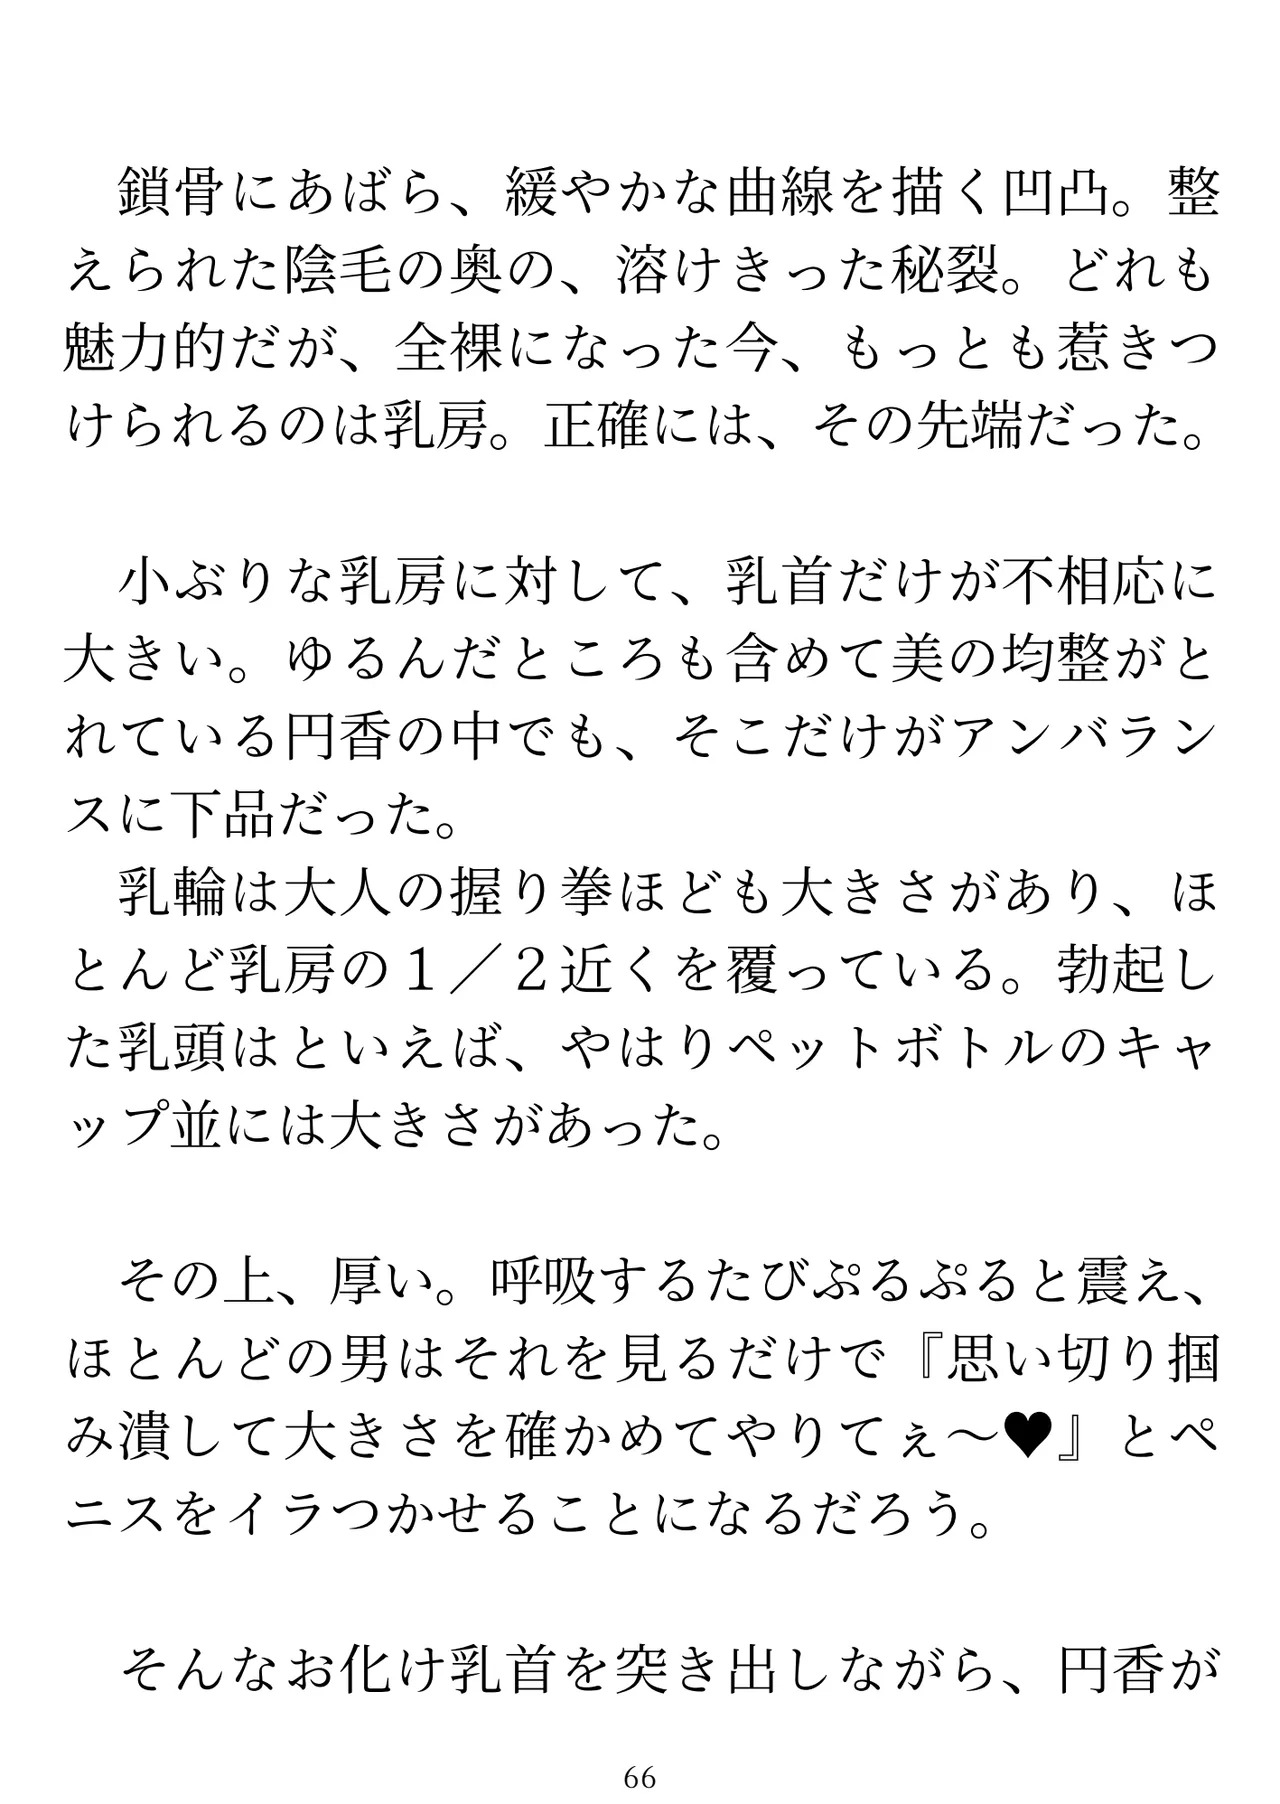 鎖骨にあばら、緩やかな曲線を描く凹凸。整
えられた陰毛の奥の、溶けきった秘裂。どれも
魅力的だが、全裸になった今、もっとも惹きつ
けられるのは乳房。正確には、その先端だった。
小ぶりな乳房に対して、乳首だけが不相応に
大きい。ゆるんだところも含めて美の均整がと
れている円香の中でも、そこだけがアンバラン
スに下品だった。
乳輪は大人の握り拳ほども大きさがあり、ほ
とんど乳房の１／２近くを覆っている。勃起し
た乳頭はといえば、やはりペットボトルのキャ
ップ並には大きさがあった。
その上、厚い。呼吸するたびぷるぷると震え、
ほとんどの男はそれを見るだけで『思い切り掴
み潰して大きさを確かめてやりてぇ～♥』とペ
ニスをイラつかせることになるだろう。
そんなお化け乳首を突き出しながら、円香が
66